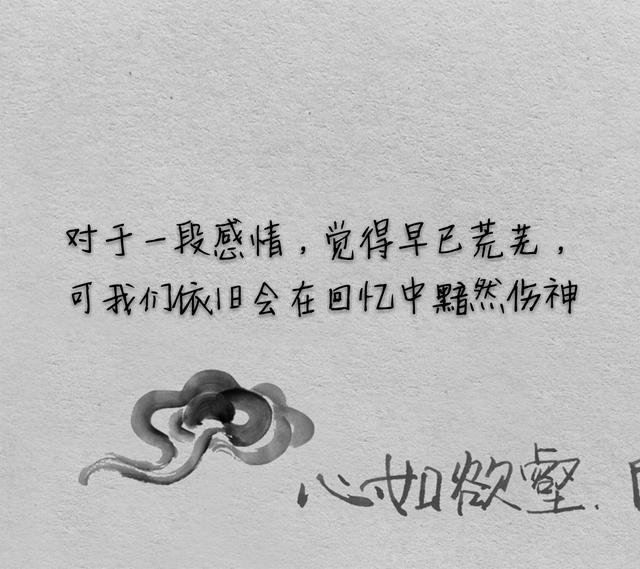 对于一段感情，觉得早已荒芜，
可我们依旧会在回忆中黯然伤神
心如欲壑.